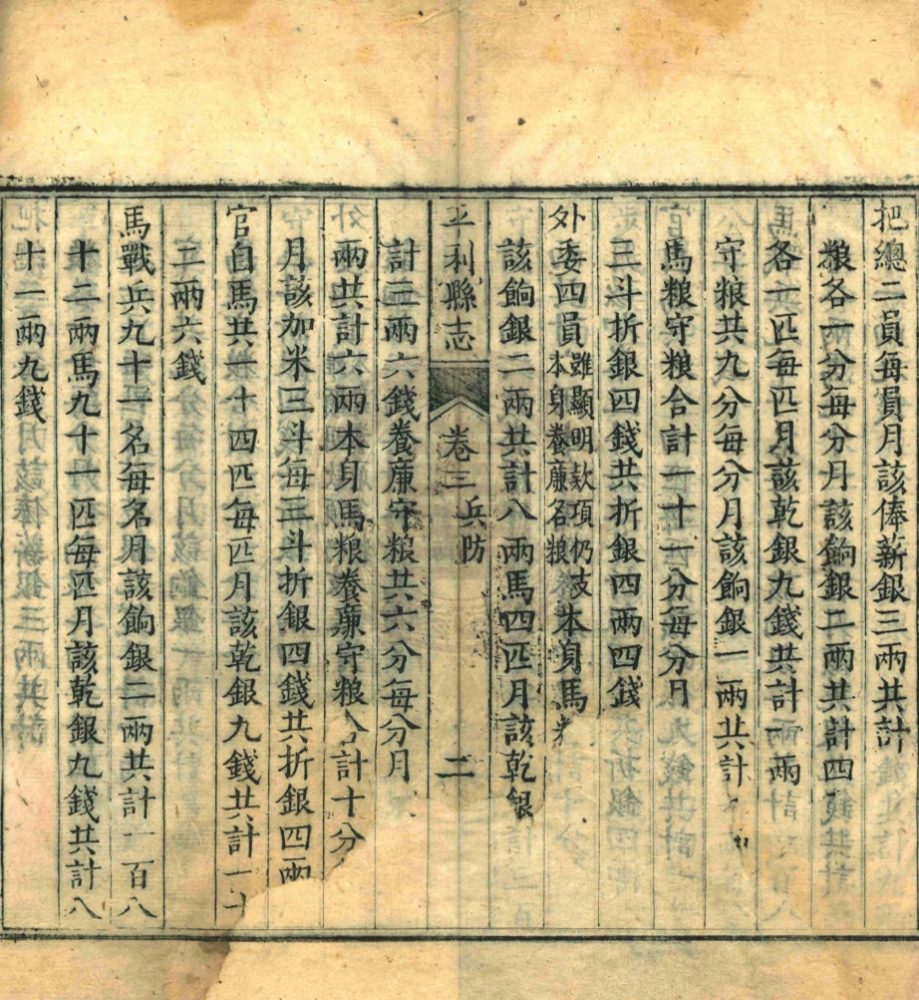 把總二員每員月該俸薪銀三兩共計
粮各一分每分月該餉銀二兩共計四
各一匹每匹月該乾銀九錢共計一兩
守粮共九分每分月該餉銀一兩共計
馬粮守粮合計一十一分每分月
三斗折銀四錢共折銀四兩四錢
外委四員雖顯明款項仍支本身養廉名粮本身馬
該餉銀二兩共計八兩馬四匹月該乾銀
平利縣志 卷三 兵防 二
計三兩六錢養廉守粮共六分每分月
兩共計六兩本身馬粮養廉守粮合計十分
月該加米三斗每三斗折銀四錢共折銀四兩
官自馬共一十四匹每匹月該乾銀九錢共計一十
二兩六錢
馬戰兵九十一名每名月該餉銀二兩共計一百八
十二兩馬九十一匹每匹月該乾銀九錢共計八
十一兩九錢